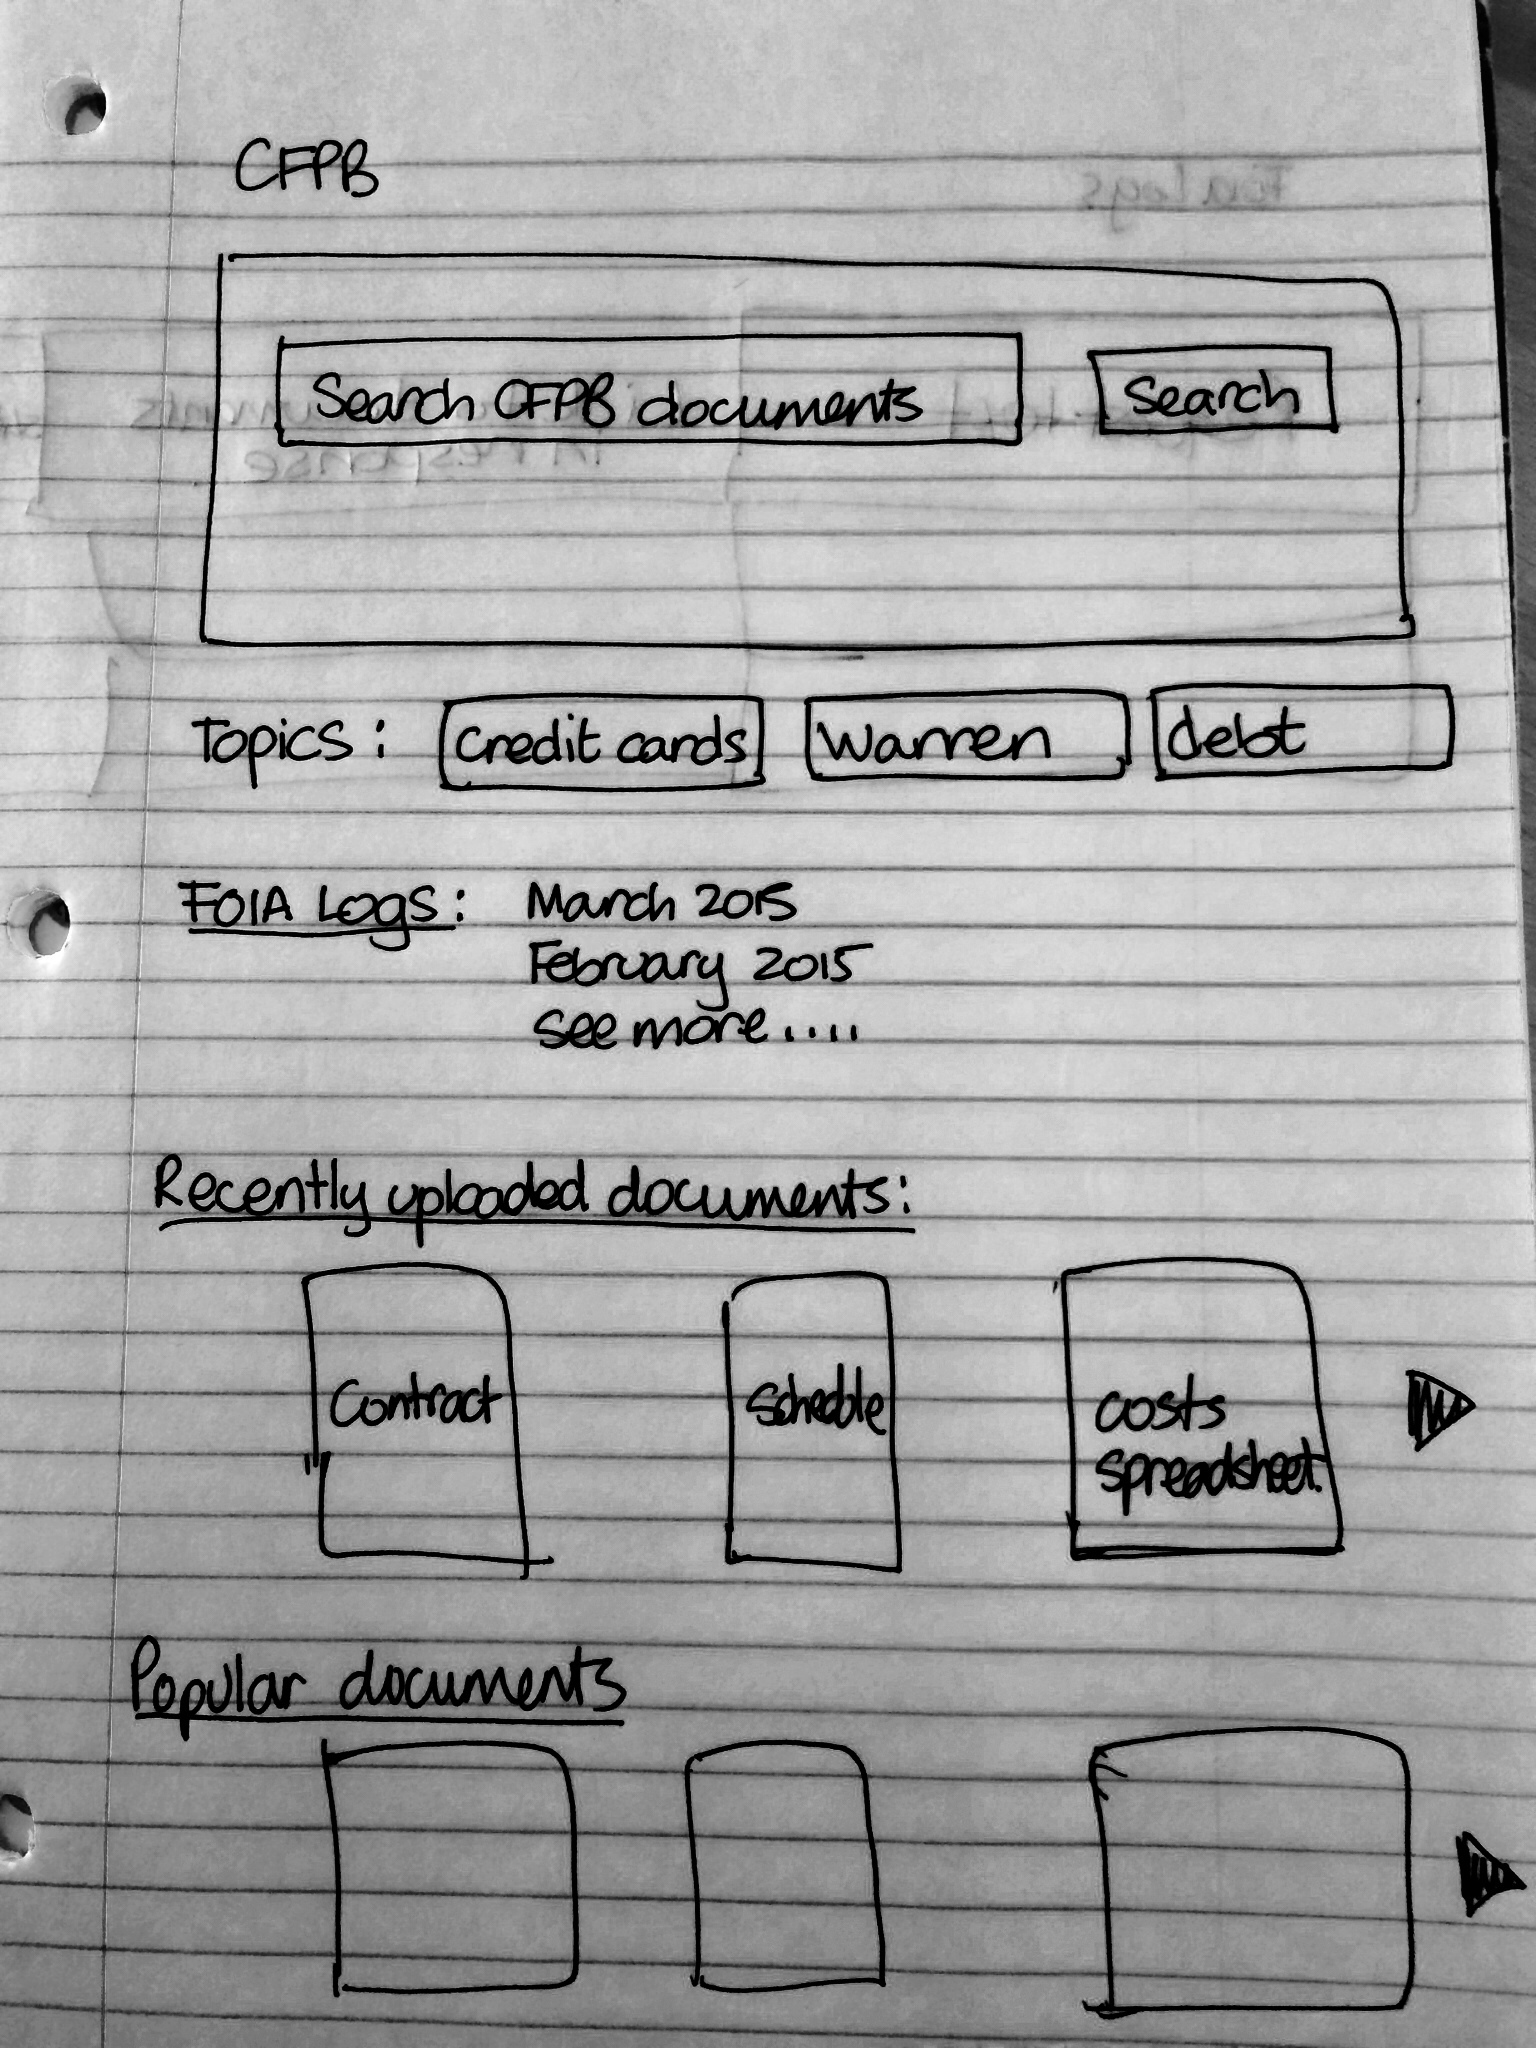 CFPB
Foia Logs
Search CFPB documents
Search
in response
Topics: credit cards Warren debt
FOIA Logs: March 2015
February 2015
see more....
Recently uploaded documents:
Contract
Schedule
costs
spreadsheet
Popular documents